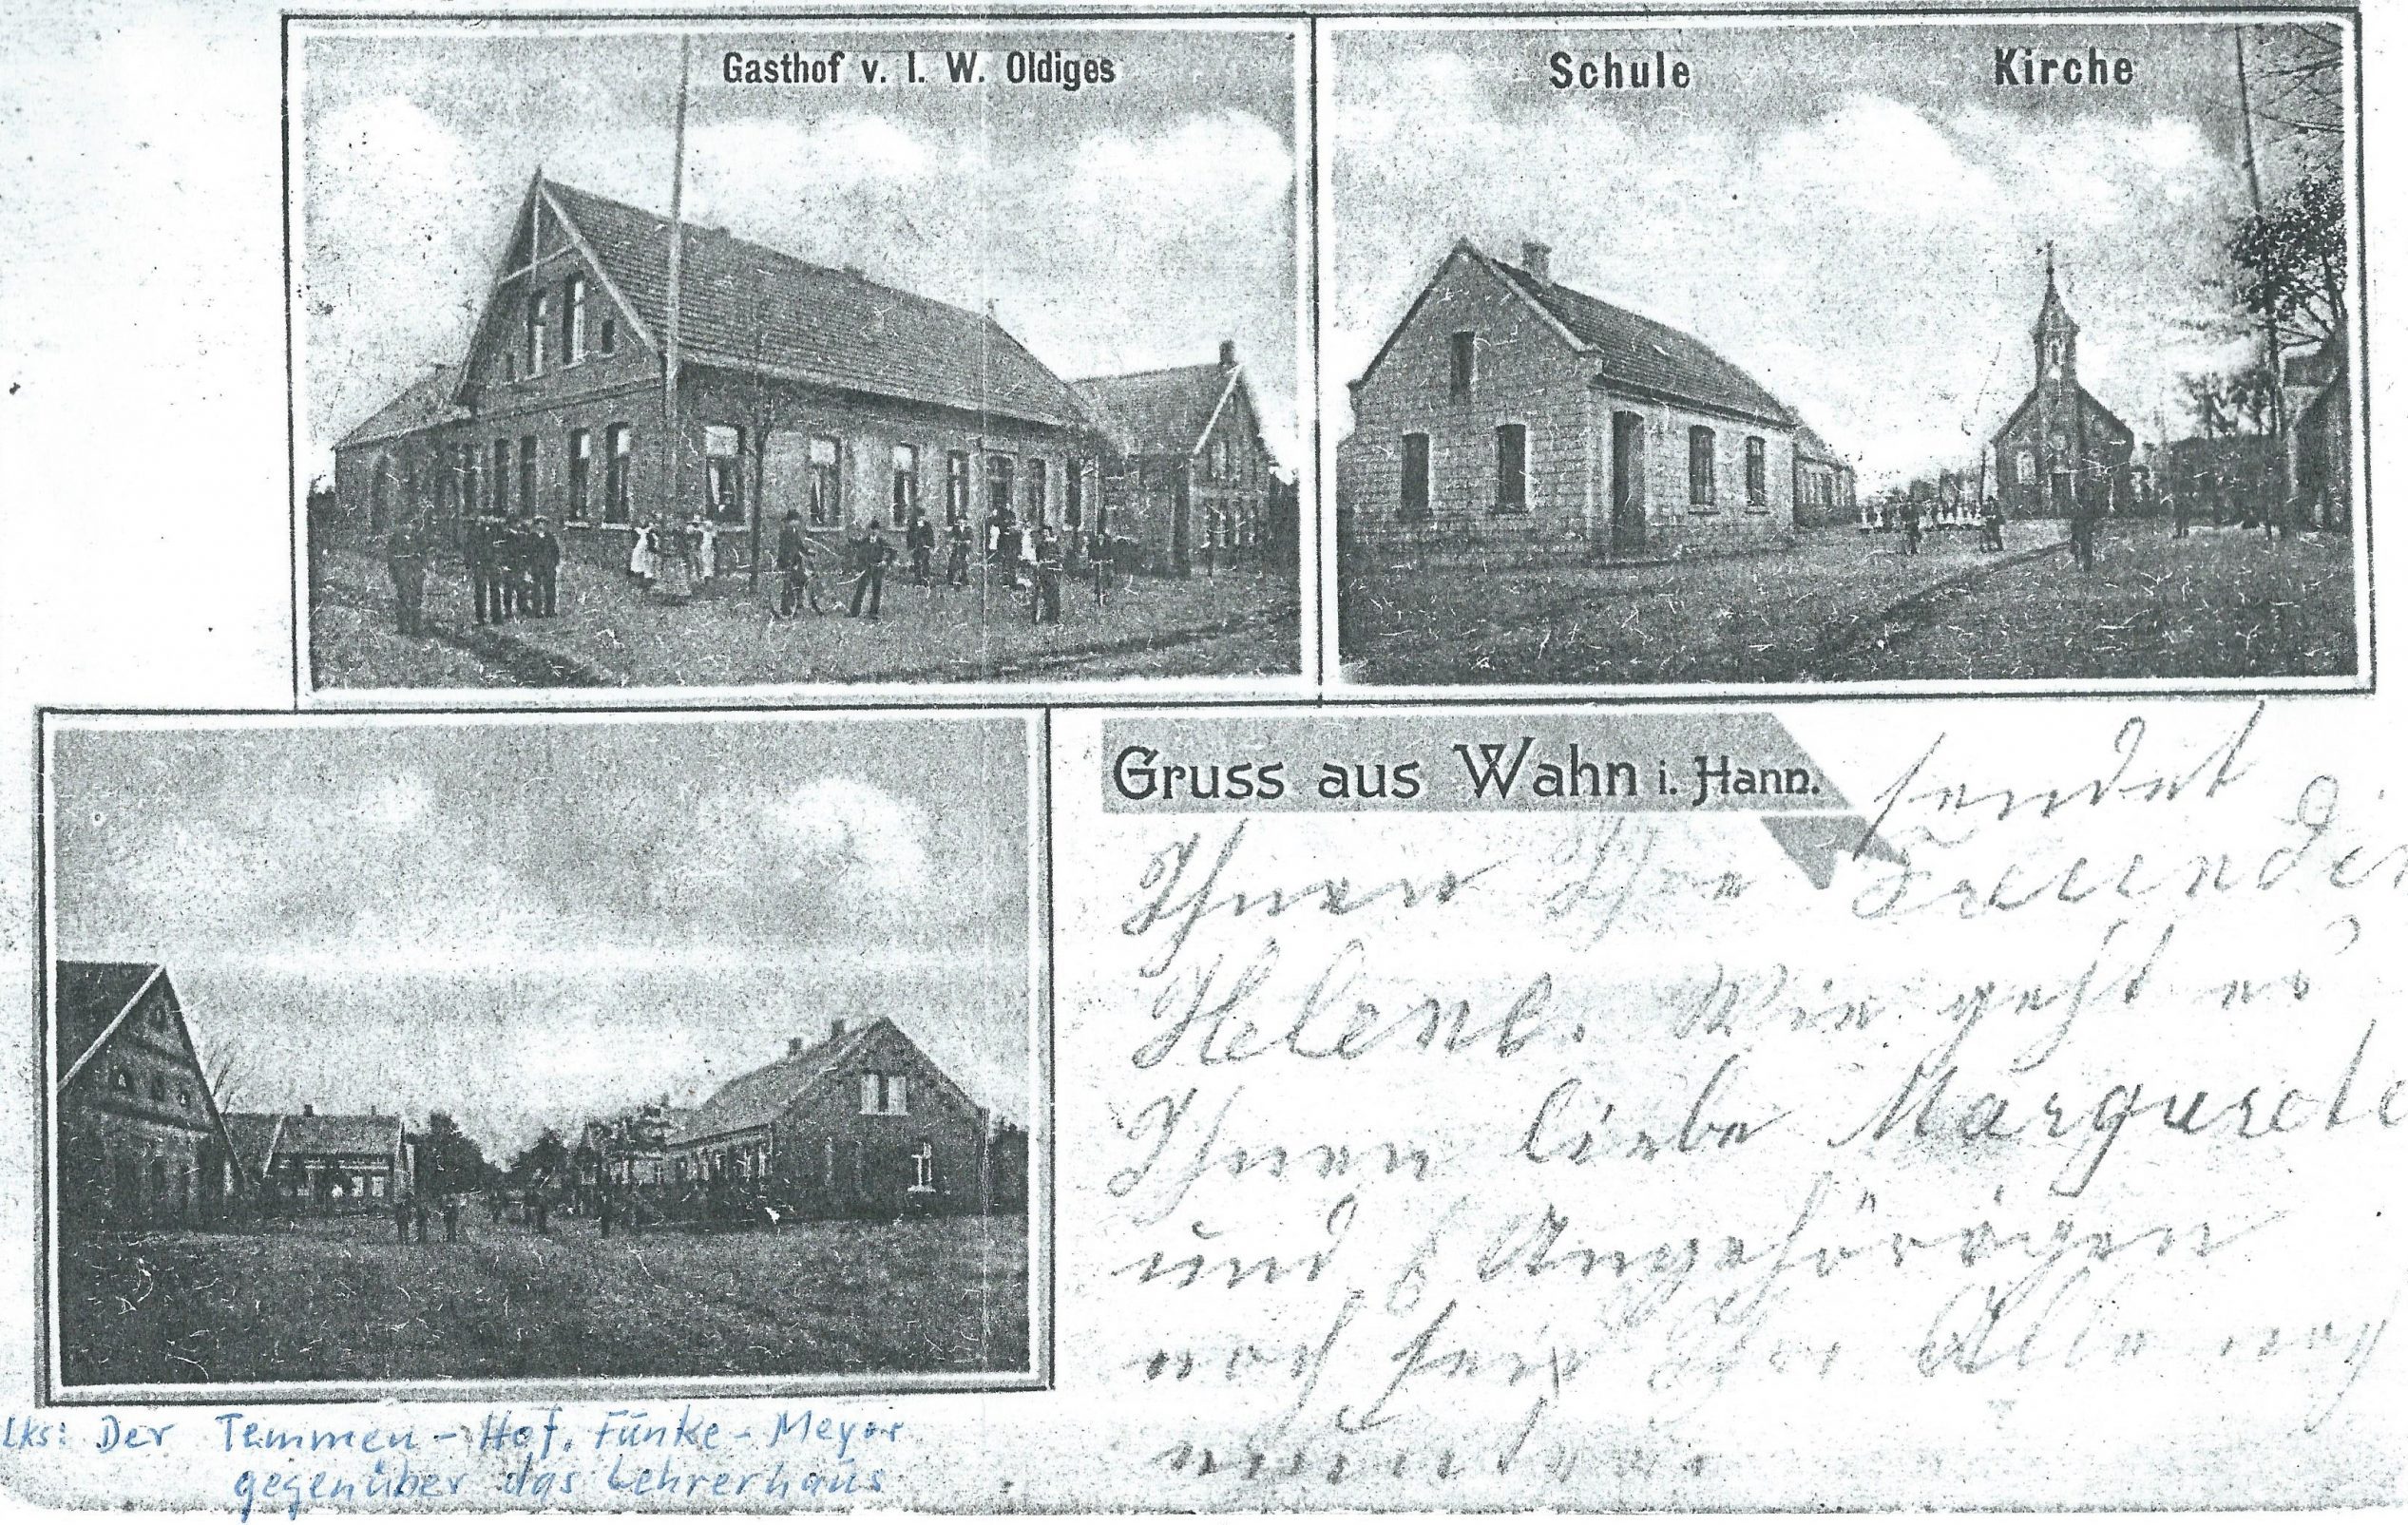 Gasthof v. I. W. Oldiges
Schule Kirche
Gruss aus Wahn i. Hann.
sendet
Ihnen Ihre Freundin
Helene. Wie geht es
Ihnen liebe Margarete
und Angehörigen
noch
Lks: Der Temmen-Hof, Funke-Meyer
gegenüber das Lehrerhaus